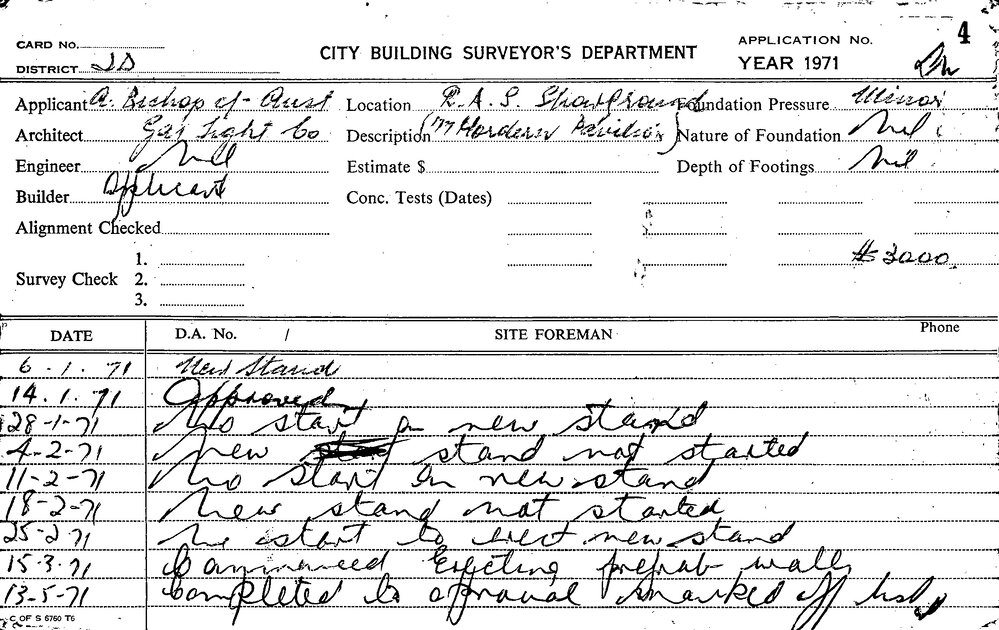 4
CARD No.
CITY BUILDING SURVEYOR'S DEPARTMENT
APPLICATION No.
DISTRICT
YEAR 1971
Applicant A. Bishop of Aust
Location R.A.S. Showground
Foundation Pressure Minor
Architect Gas Light Co
Description (M Hordern Pavilion)
Nature of Foundation Nil
Engineer Nil
Estimate $
Depth of Footings Nil
Builder Applicant
Conc. Tests (Dates)
Alignment Checked
$3000
1.
Survey Check 2.
3.
DATE
D.A. No. /
SITE FOREMAN
Phone
6.1.71 New Stand
14.1.71 Approved
28-1-71 No start on new stand
4-2-71 New stand not started
11-2-71 No start on new stand
18-2-71 New stand not started
25-2-71 No start to erect new stand
15-3-71 Commenced Erecting prefab walls
13-5-71 Completed to approval marked off list
C OF S 6760 T6